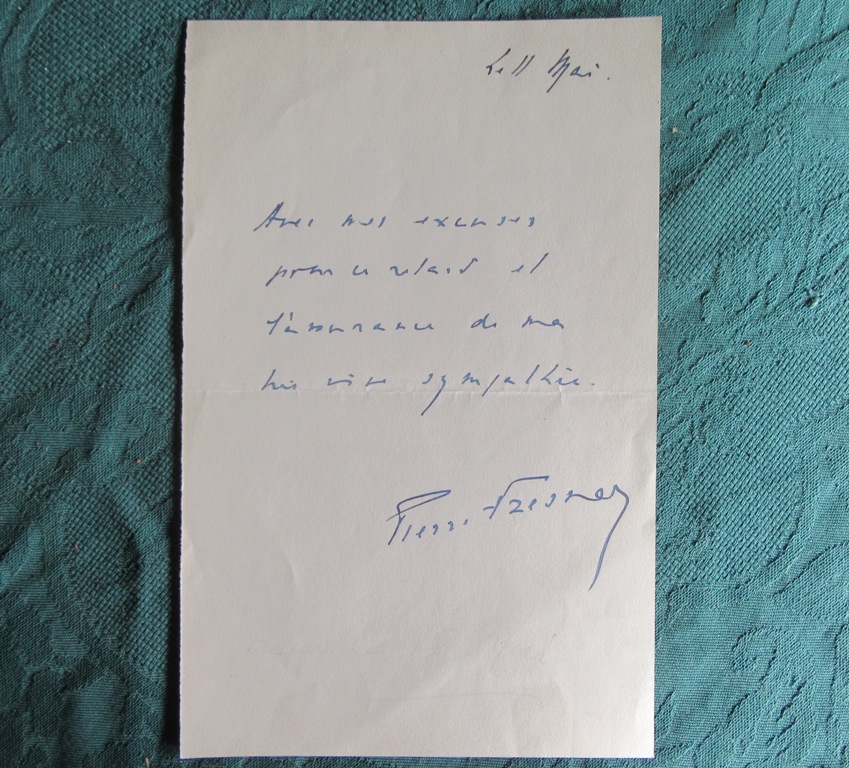 Le 11 Mai.
Avec mes excuses
pour ce retard et
l'assurance de ma
très vive sympathie.
Pierre Fresnay